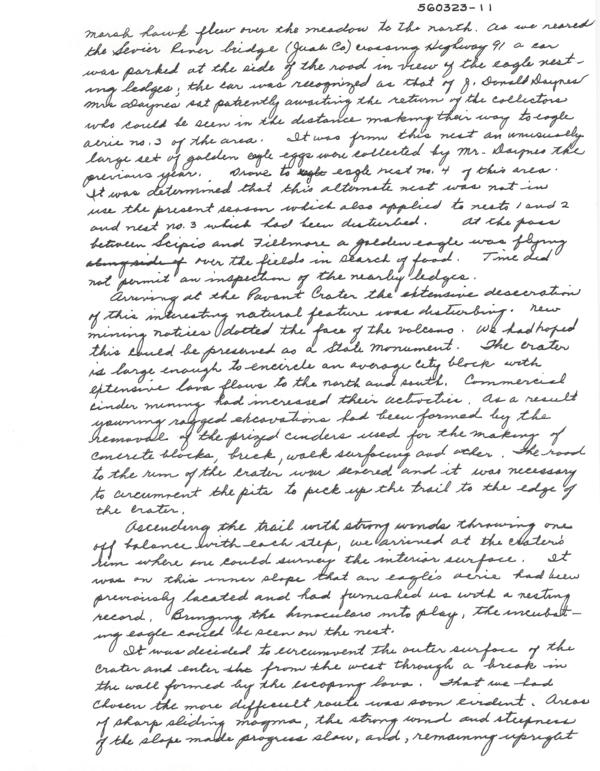 560323-11
marsh hawk flew over the meadow to the north. As we neared
the Sevier River bridge (Juab Co) crossing Highway 91 a car
was parked at the side of the road in view of the eagle nest-
ing ledges; the car was recognized as that of J. Donald Daynes
Mrs Daynes sat patiently awaiting the return of the collectors
who could be seen in the distance making their way to eagle
aerie no. 3 of the area. It was from this nest an unusually
large set of golden eagle eggs were collected by Mr. Daynes the
previous year. Drove to eagle nest no. 4 of this area.
It was determined that this alternate nest was not in
use the present season which also applied to nests 1 and 2
and nest no. 3 which had been disturbed. At the pass
between Scipio and Fillmore a golden eagle was flying
along side of over the fields in search of food. Time did
not permit an inspection of the nearby ledges.
Arriving at the Pavant Crater the extensive desecration
of this interesting natural feature was disturbing. New
mining notices dotted the face of the volcano. We had hoped
this could be preserved as a State Monument. The crater
is large enough to encircle an average city block with
extensive lava flows to the north and south. Commercial
cinder mining had increased their activities. As a result
yawning ragged excavations had been formed by the
removal of the prized cinders used for the making of
concrete blocks, brick, walk surfacing and other. The road
to the rim of the crater was severed and it was necessary
to circumvent the pits to pick up the trail to the edge of
the crater.
Ascending the trail with strong winds throwing one
off balance with each step, we arrived at the crater's
rim where one could survey the interior surface. It
was on this inner slope that an eagle's aerie had been
previously located and had furnished us with a nesting
record. Bringing the binoculars into play, the incubat-
ing eagle could be seen on the nest.
It was decided to circumvent the outer surface of the
crater and enter from the west through a break in
the wall formed by the escaping lava. That we had
chosen the more difficult route was soon evident. Areas
of sharp sliding magma, the strong wind and steepness
of the slope made progress slow, and, remaining upright